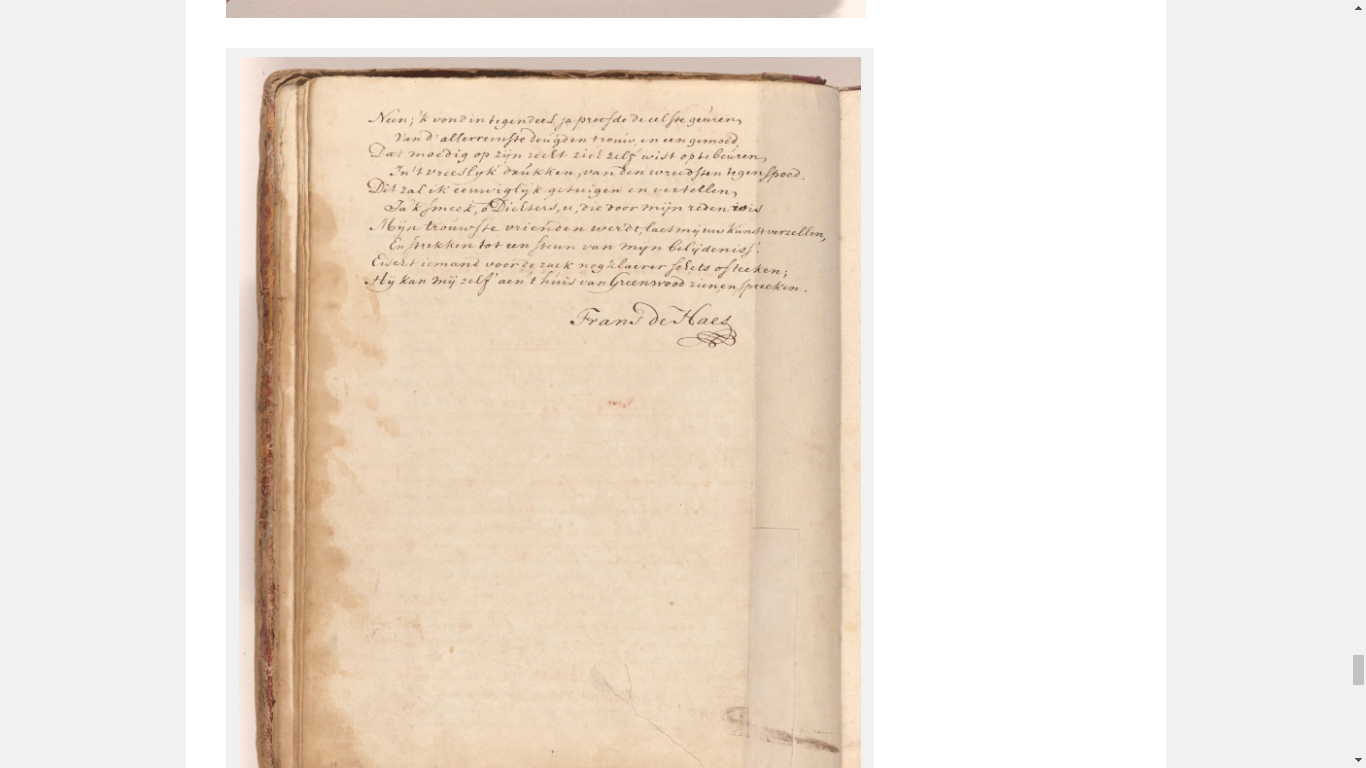 Neen; 'k vond in tegendeel, ja proefde de eêlste geuren,
Van d' allerreinste deugden trouw, en een gemoed
Dat moedig op zijn recht zich zelf wist op te beuren,
In 't vreeslyk drukken, van den wreedsten tegenspoed.
Dit zal ik eeuwiglijk getuigen en vertellen,
Ja 'k smeek, ô Dichters, u, die door mijn reden is
Mijn trouwste vrienden werdt, laet my uw kunst verzellen,
En strekken tot een steun van mijn belijdeniss'.
Eischt iemand voor de zaek nog klaerer schets of teeken;
Hij kan mij zelf aen 't huis van Greenwood zien, en spreeken.
Frans de Haes